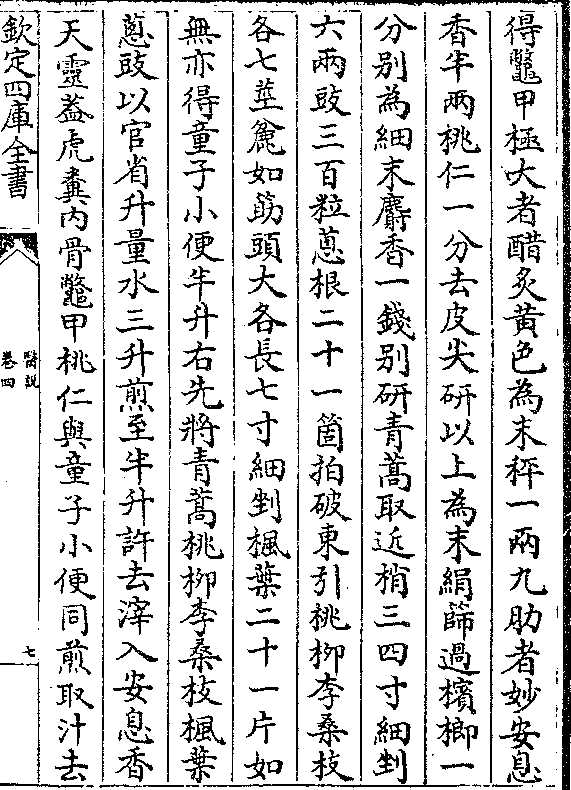 得鼈甲極大者醋炙黃色為末秤一兩九肋者妙安息
香半兩桃仁一分去皮尖研以上為末絹篩過檳榔一
分别為細末麝香一錢别研青蒿取近梢三四寸細剉
六兩豉三百粒蔥根二十一箇拍破東引桃柳李桑枝
各七莖麄如筯頭大各長七寸細剉楓葉二十一片如
無亦得童子小便半升右先將青蒿桃柳李桑枝楓葉
蔥豉以官省升量水三升煎至半升許去滓入安息香
天靈葢虎糞内骨鼈甲桃仁與童子小便同煎取汁去
欽定四庫全書
醫說
卷四
七